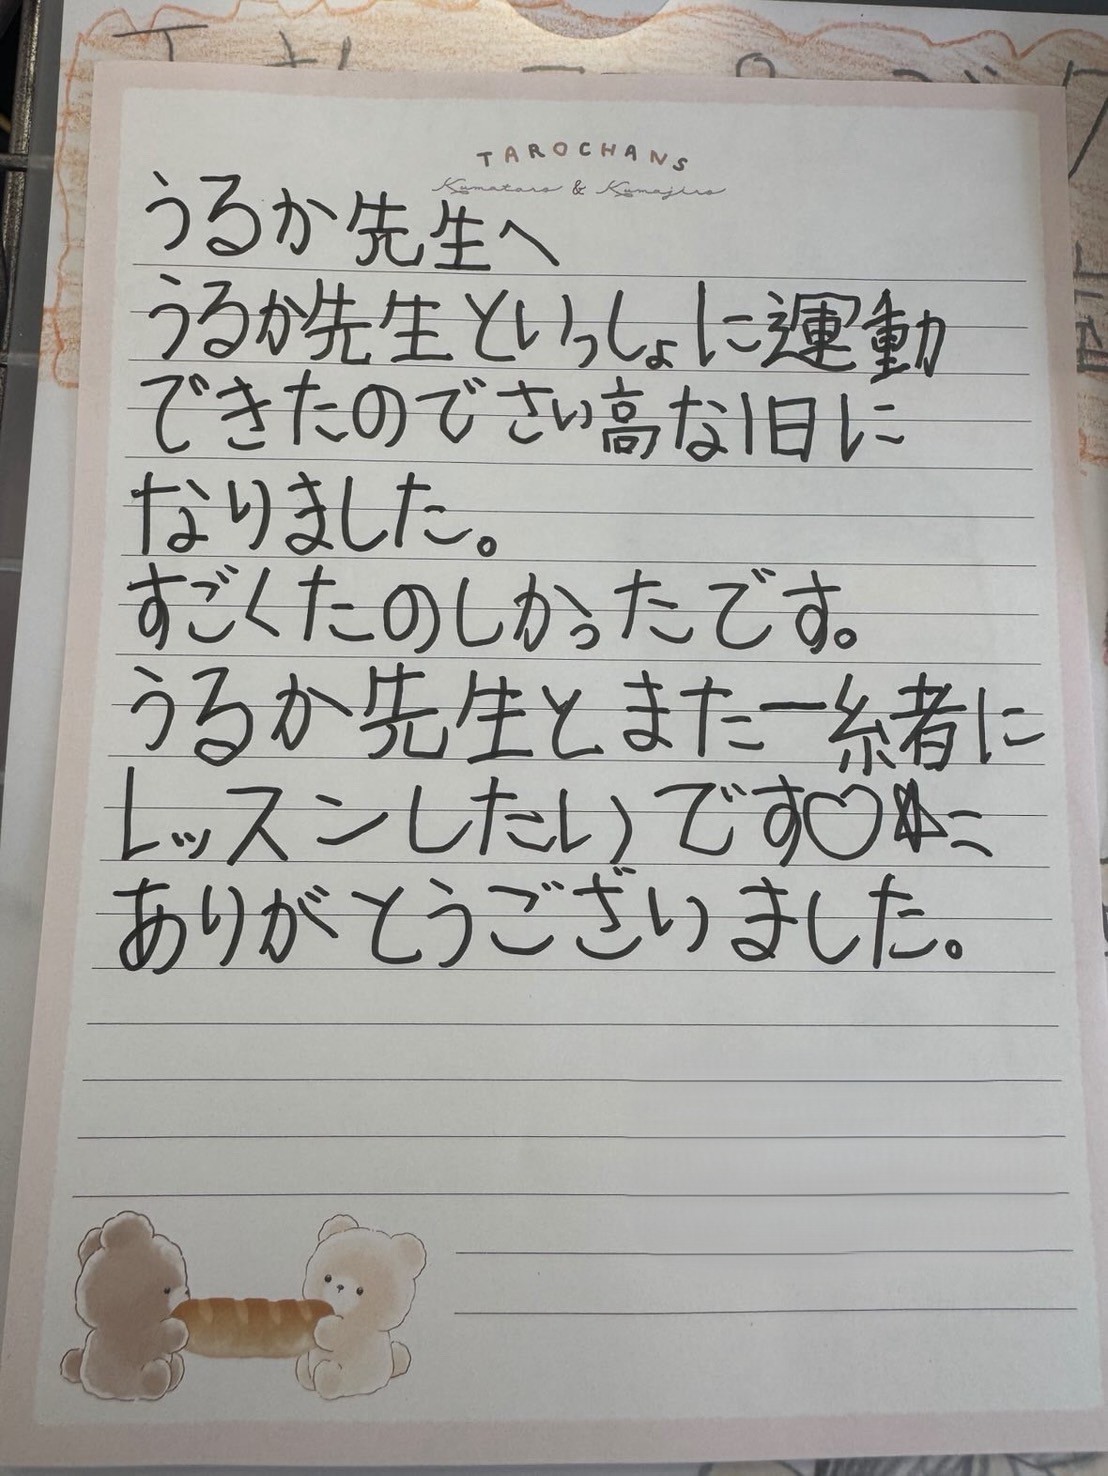 TAROCHANS
Kumataro & Kumajiro
うるか先生へ
うるか先生といっしょに運動
できたのでさい高な1日に
なりました。
すごくたのしかったです。
うるか先生とまた一緒に
レッスンしたいです♡
ありがとうございました。